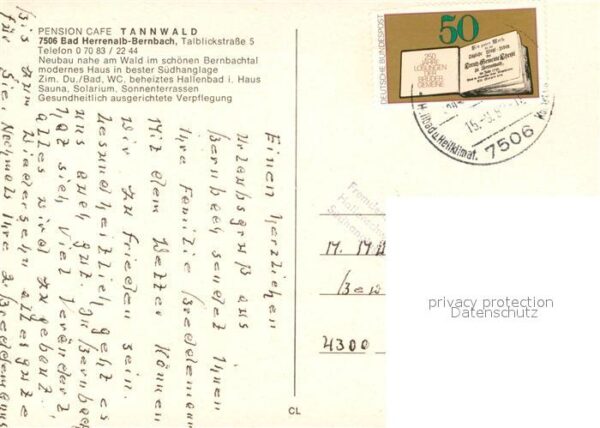 PENSION CAFE TANNWALD
7506 Bad Herrenalb-Bernbach, Talblickstraße 5
Telefon 0 70 83 / 22 44
Neubau nahe am Wald im schönen Bernbachtal
modernes Haus in bester Südhanglage
Zim. Du./Bad, WC, beheiztes Hallenbad i. Haus
Sauna, Solarium, Sonnenterrassen
Gesundheitlich ausgerichtete Verpflegung
DEUTSCHE BUNDESPOST
50
250
JAHRE
LOSUNGEN
DER
BRÜDER-
GEMEINE
7506
Einen herzlichen
Urlaubsgruß aus
Bernbach sendet Ihnen
Ihre Familie Breddemann
Mit dem Wetter können
wir zufrieden sein.
Gesundheitlich geht es
uns auch gut. In Bernbach
hat sich viel verändert
alles wird zugebaut.
Bis zum Wiedersehn alles gute
für Sie Nochmals Ihre Breddemanns
4300
CL
privacy protection
Datenschutz